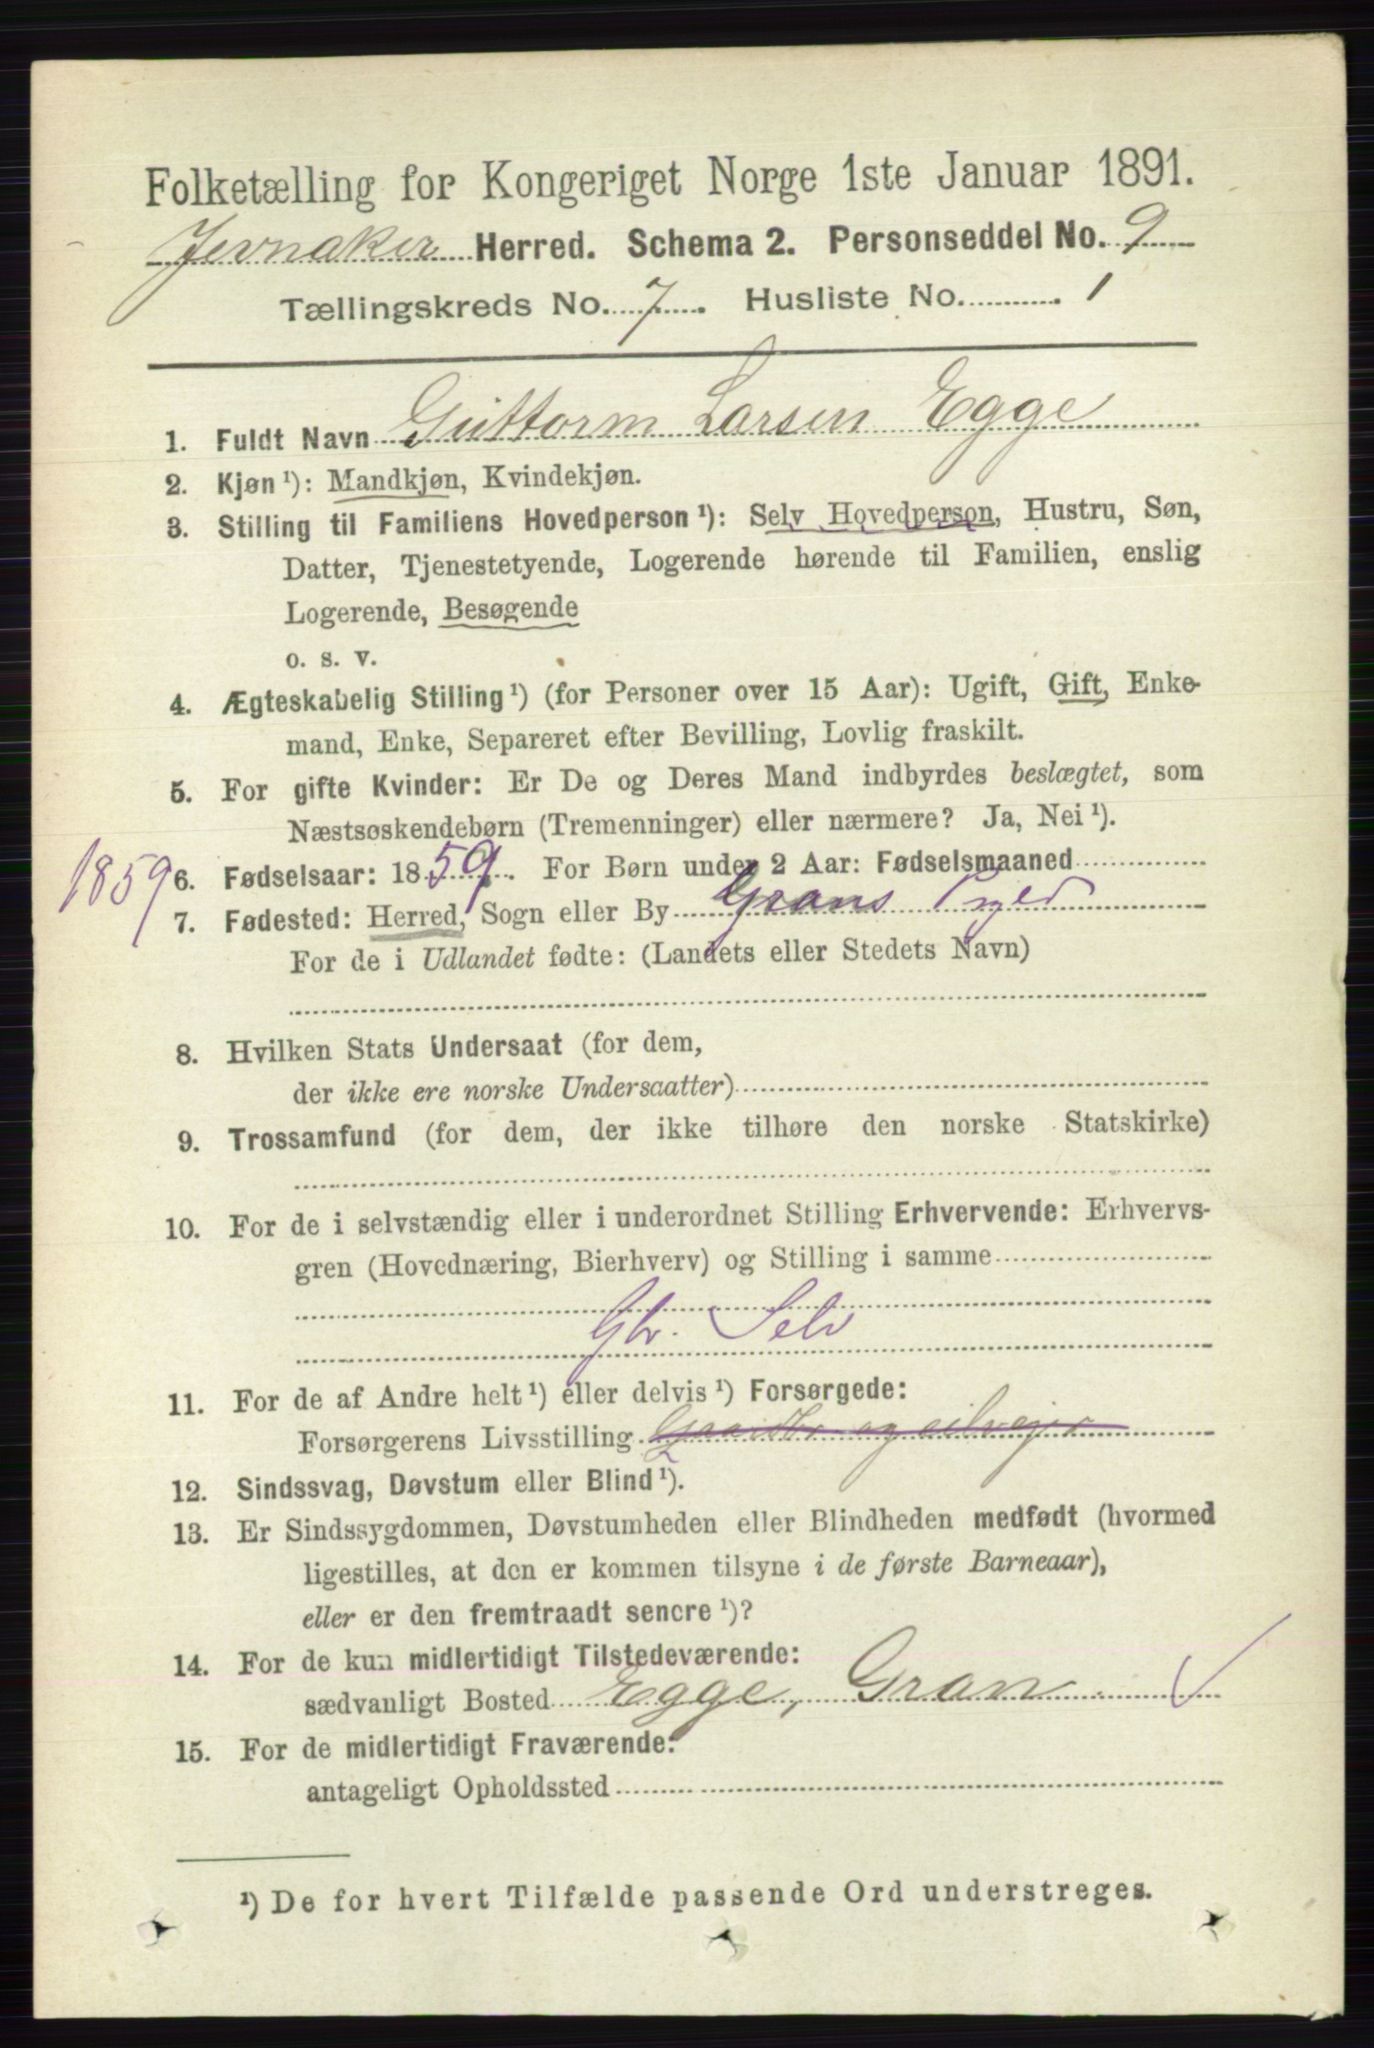 Folketælling for Kongeriget Norge 1ste Januar 1891.
Jevnaker Herred. Schema 2. Personseddel No. 9
Tællingskreds No. 7. Husliste No. 1
1. Fuldt Navn Guttorm Larsen Egge
2. Kjøn ¹): Mandkjøn, Kvindekjøn.
3. Stilling til Familiens Hovedperson ¹): Selv Hovedperson, Hustru, Søn,
Datter, Tjenestetyende, Logerende hørende til Familien, enslig
Logerende, Besøgende
o. s. v.
4. Ægteskabelig Stilling ¹) (for Personer over 15 Aar): Ugift, Gift, Enke-
mand, Enke, Separeret efter Bevilling, Lovlig fraskilt.
5. For gifte Kvinder: Er De og Deres Mand indbyrdes beslægtet, som
Næstsøskendebørn (Tremenninger) eller nærmere? Ja, Nei ¹).
1859 6. Fødselsaar: 1859. For Børn under 2 Aar: Fødselsmaaned
7. Fødested: Herred, Sogn eller By Grans
For de i Udlandet fødte: (Landets eller Stedets Navn)
8. Hvilken Stats Undersaat (for dem,
der ikke ere norske Undersaatter)
9. Trossamfund (for dem, der ikke tilhøre den norske Statskirke)
10. For de i selvstændig eller i underordnet Stilling Erhvervende: Erhvervs-
gren (Hovednæring, Bierhverv) og Stilling i samme
Gbr. Selv
11. For de af Andre helt ¹) eller delvis ¹) Forsørgede:
Forsørgerens Livsstilling Gaardbr og selvejer
12. Sindssvag, Døvstum eller Blind ¹).
13. Er Sindssygdommen, Døvstumheden eller Blindheden medfødt (hvormed
ligestilles, at den er kommen tilsyne i de første Barneaar),
eller er den fremtraadt senere ¹)?
14. For de kun midlertidigt Tilstedeværende:
sædvanligt Bosted Egge, Gran
15. For de midlertidigt Fraværende:
antageligt Opholdssted
¹) De for hvert Tilfælde passende Ord understreges.